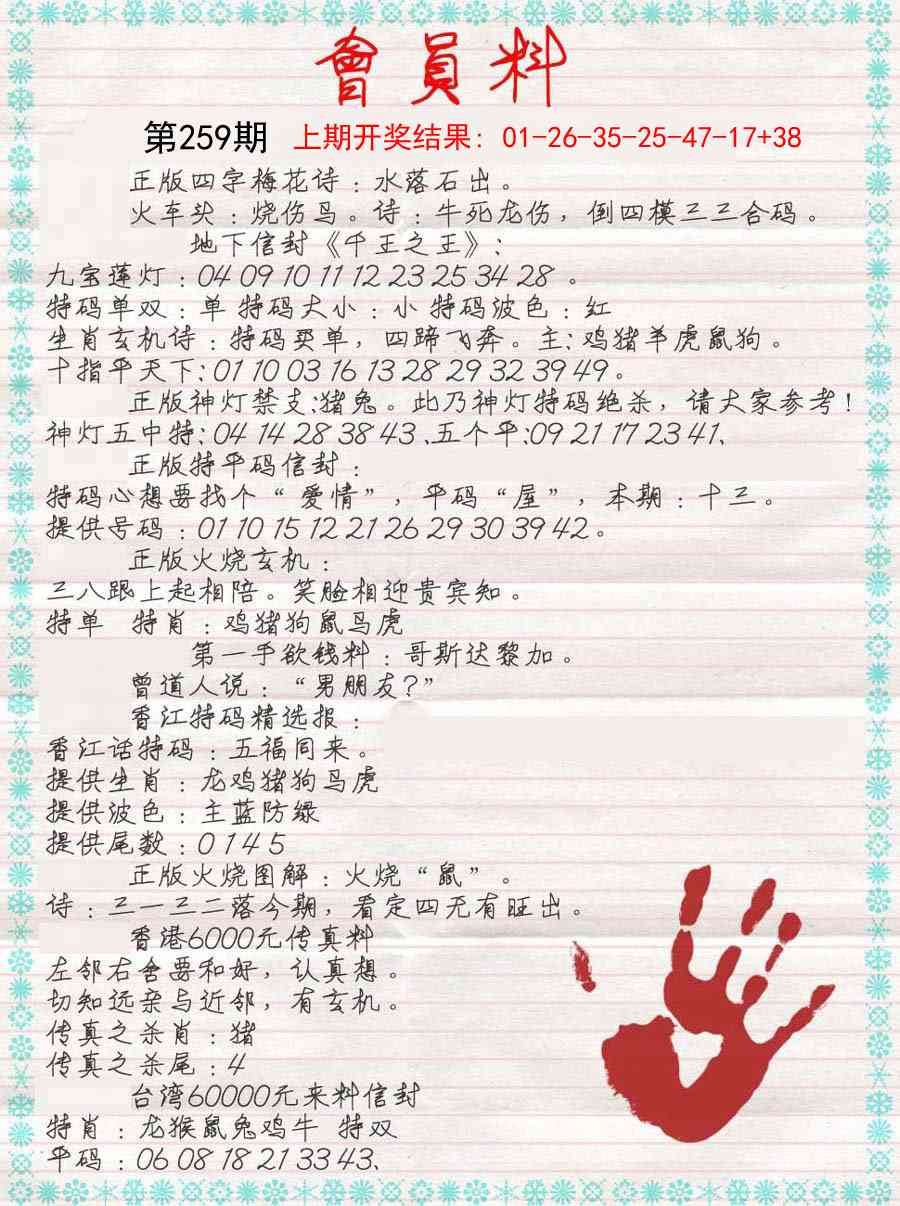 會員料
第259期 上期开奖结果：01-26-35-25-47-17+38
正版四字梅花诗：水落石出。
火车头：烧伤鸟。诗：牛死龙伤，倒四模三三合码。
地下信封《千王之王》：
九宝莲灯：04 09 10 11 12 23 25 34 28 。
特码单双：单 特码大小：小 特码波色：红
生肖玄机诗：特码买单，四蹄飞奔。主：鸡猪羊虎鼠狗。
十指平天下：01 10 03 16 13 28 29 32 39 49。
正版神灯禁支：猪兔。此乃神灯特码绝杀，请大家参考！
神灯五中特：04 14 28 38 43、五个平：09 21 17 23 41、
正版特平码信封：
特码心想要找个“爱情”，平码“屋”，本期：十三。
提供号码：01 10 15 12 21 26 29 30 39 42。
正版火烧玄机：
三八跟上起相陪。笑脸相迎贵宾知。
特单 特肖：鸡猪狗鼠马虎
第一手欲钱料：哥斯达黎加。
曾道人说：“男朋友？”
香江特码精选报：
香江话特码：五福同来。
提供生肖：龙鸡猪狗马虎
提供波色：主蓝防绿
提供尾数：0 1 4 5
正版火烧图解：火烧“鼠”。
诗：三一三二落今期，看定四无有旺出。
香港6000元传真料
左邻右舍要和好，认真想。
切知远亲与近邻，有玄机。
传真之杀肖：猪
传真之杀尾：4
台湾60000元来料信封
特肖：龙猴鼠兔鸡牛 特双
平码：06 08 18 21 33 43、